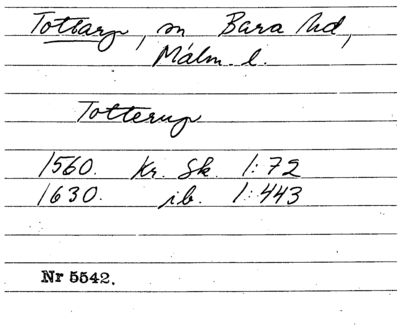 Tottarp, sn Bara hd,
Malm. l.
Totterup
1560. Kr. Sk. 1:72
1630. ib. 1:443
Nr 5542.